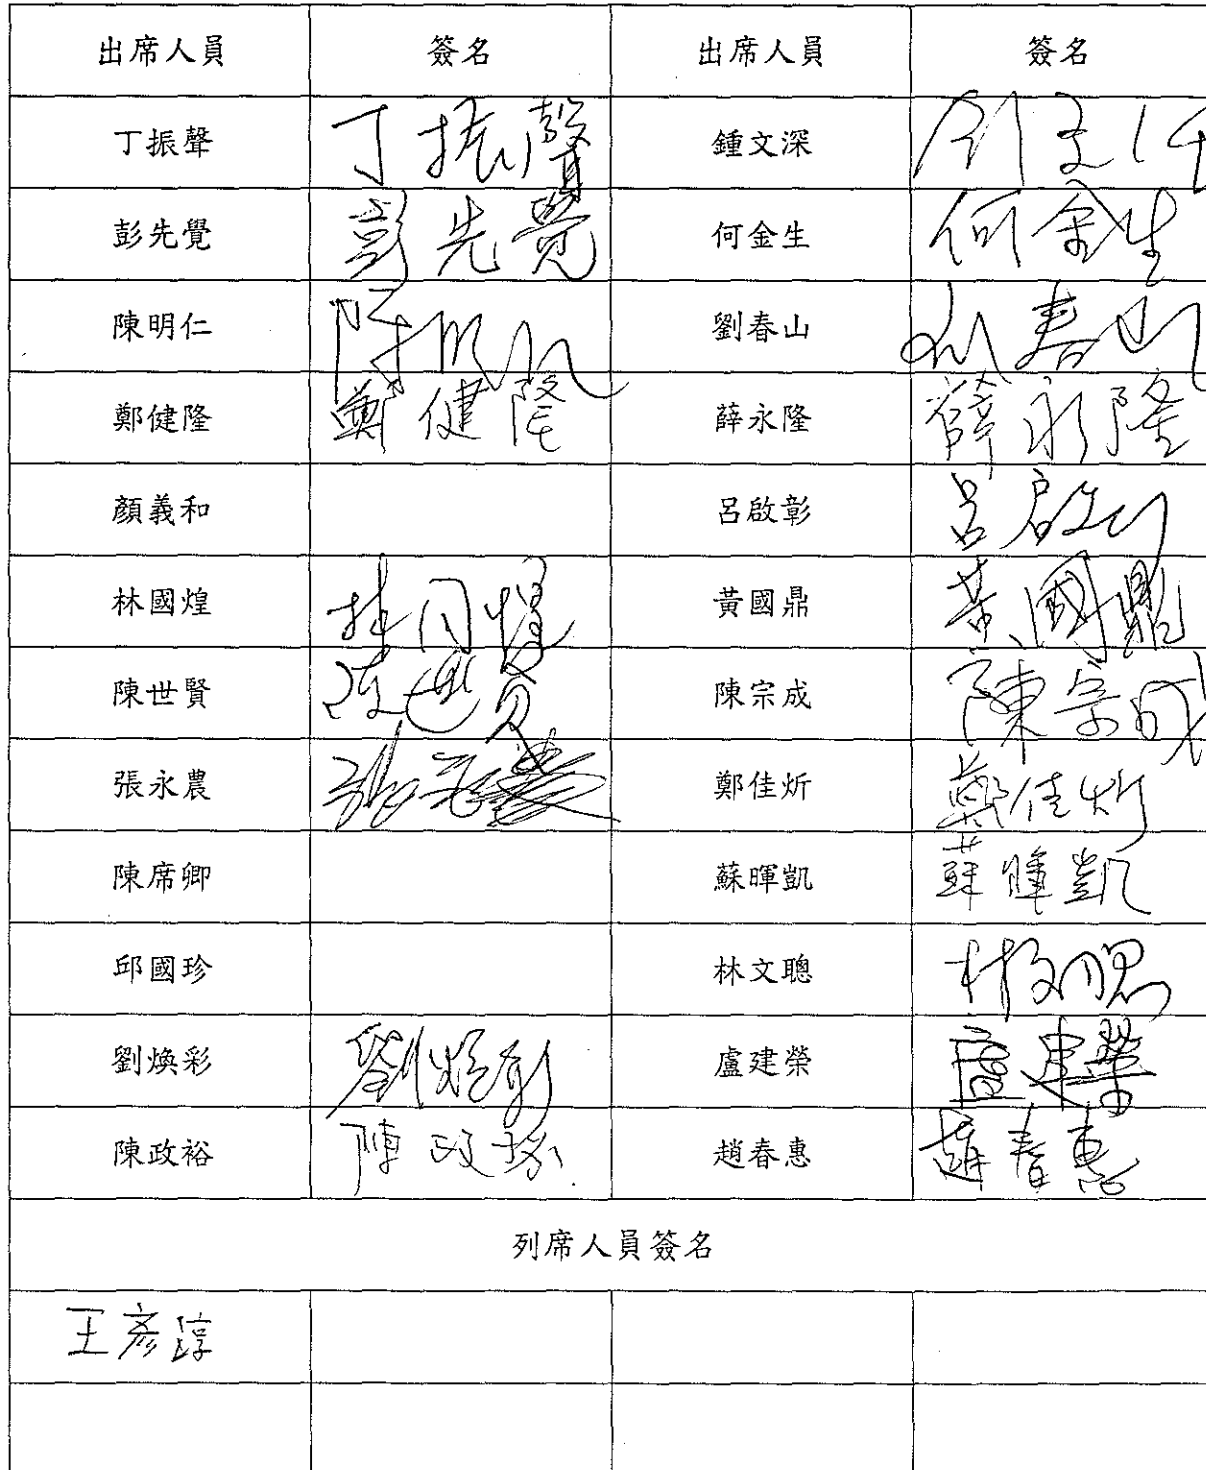 出席人員 簽名 出席人員 簽名
丁振聲 丁振聲 鍾文深
彭先覺 彭先覺 何金生 何金生
陳明仁 陳明仁 劉春山 劉春山
鄭健隆 鄭健隆 薛永隆 薛永隆
顏義和 呂啟彰 呂啟彰
林國煌 林國煌 黃國鼎 黃國鼎
陳世賢 陳世賢 陳宗成 陳宗成
張永農 張永農 鄭佳炘 鄭佳炘
陳席卿 蘇暉凱 蘇暉凱
邱國珍 林文聰 林文聰
劉煥彩 劉煥彩 盧建榮 盧建榮
陳政裕 陳政裕 趙春惠 趙春惠
列席人員簽名
王彥淳